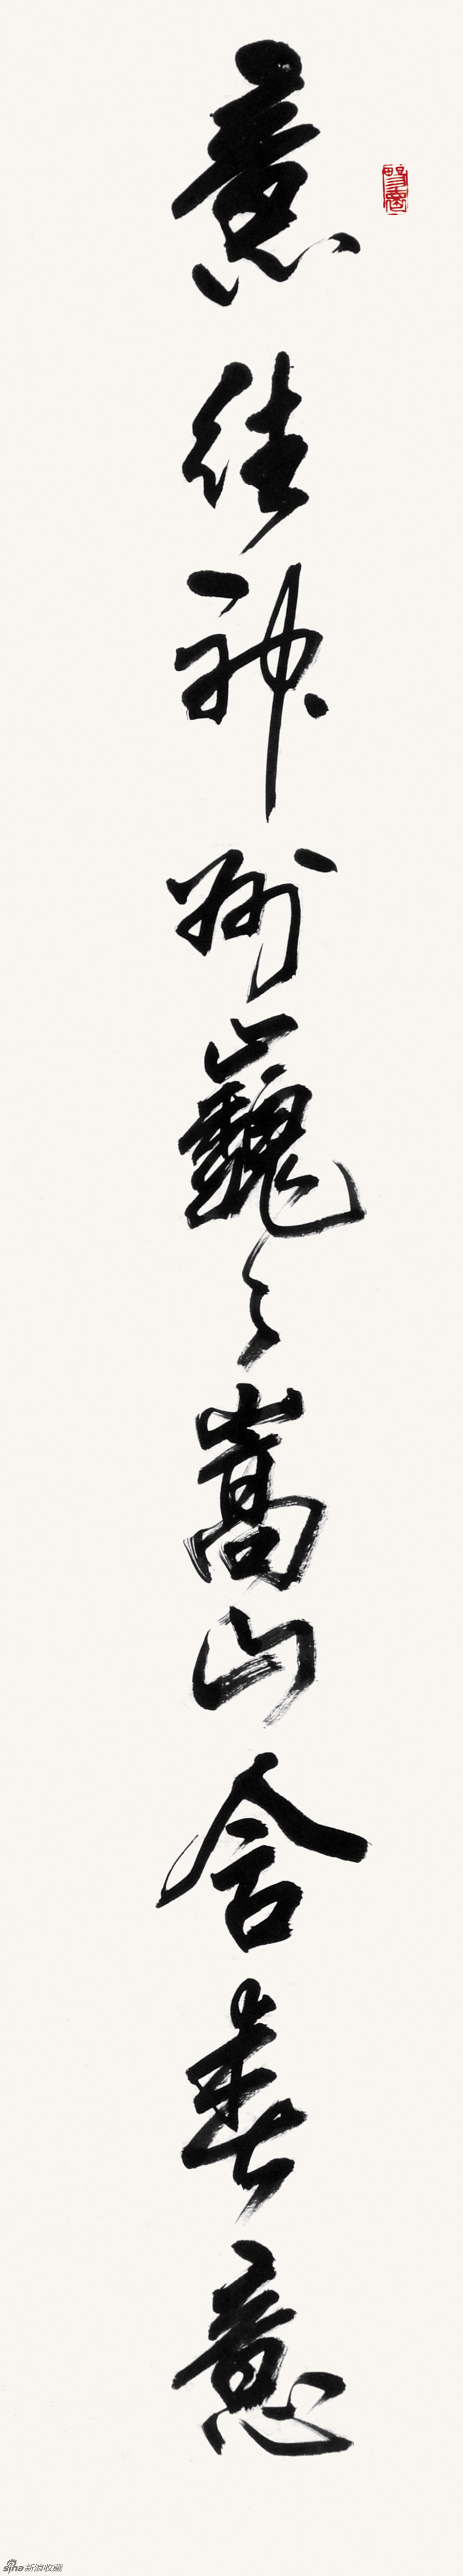 意往神州巍々嵩山含春意
sina新浪收藏